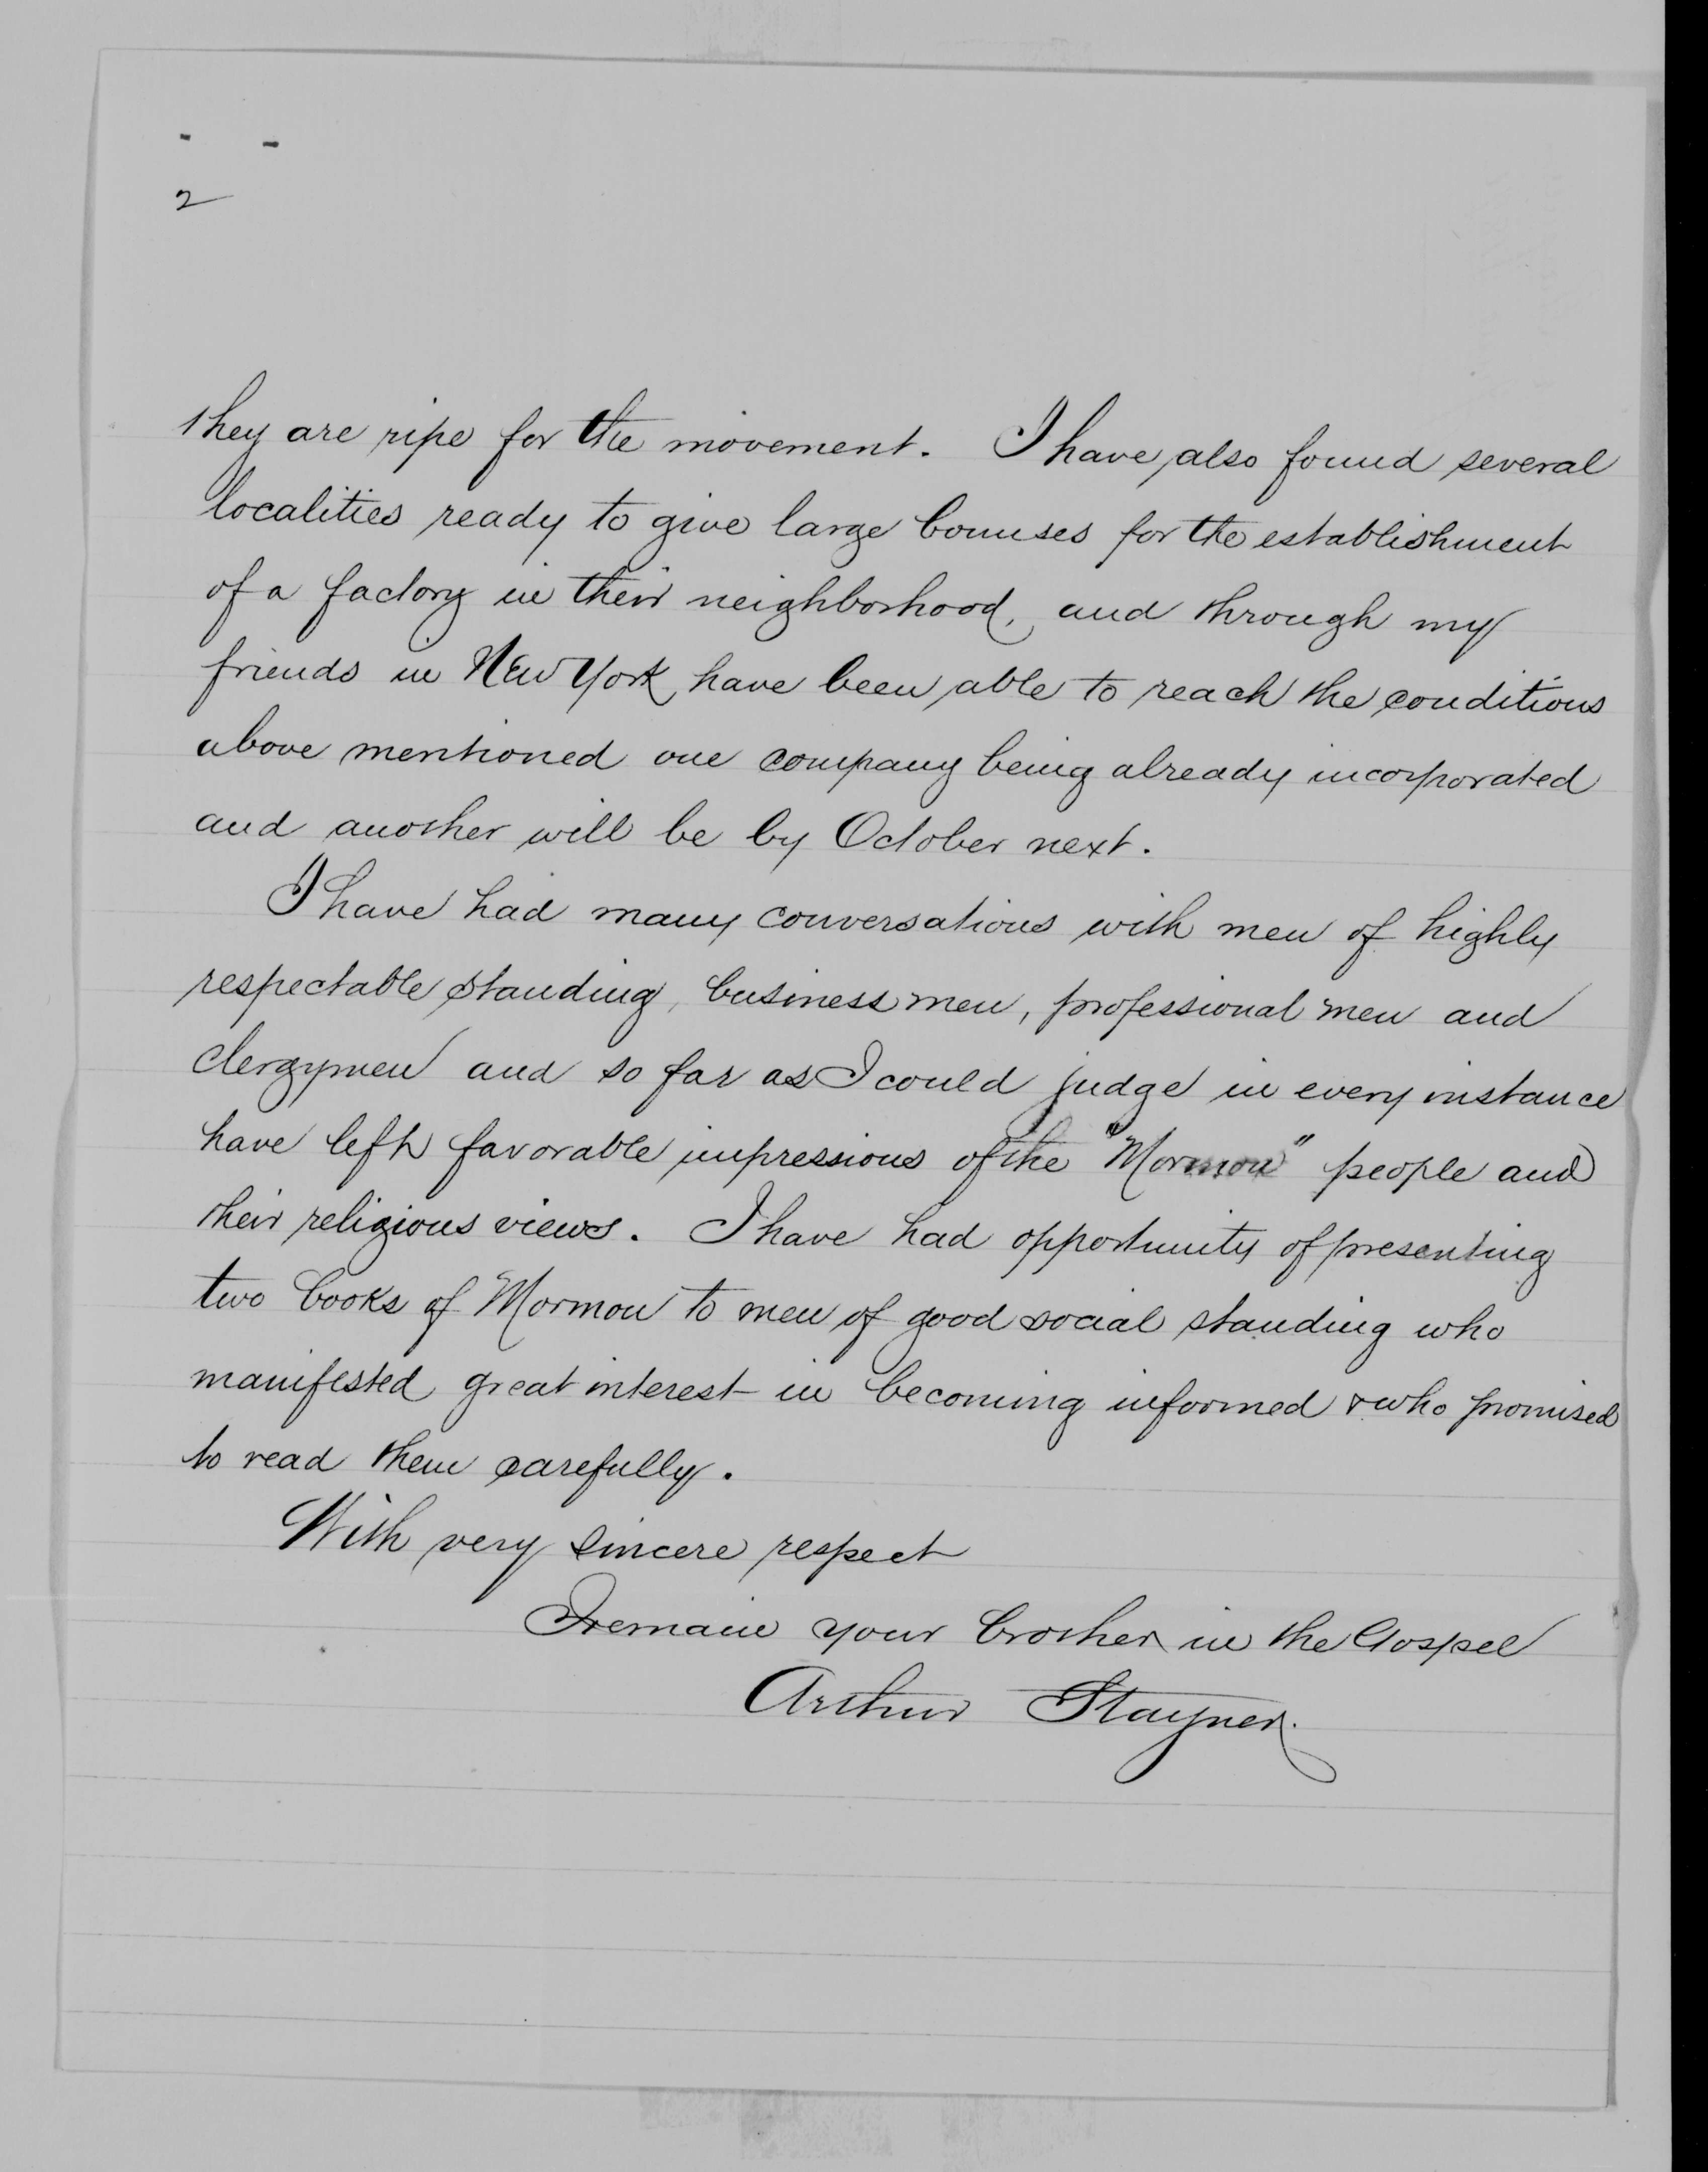 2
they are ripe for the movement. I have also found several
localities ready to give large bonuses for the establishment
of a factory in their neighborhood, and through my
friends in New York have been able to reach the conditions
above mentioned one company being already incorporated
and another will be by October next.
I have had many conversations with men of highly
respectable standing, business men, professional men and
clergymen and so far as I could judge in every instance
have left favorable impressions of the "Mormon" people and
their religious views. I have had opportunity of presenting
two books of Mormon to men of good social standing who
manifested great interest in becoming informed & who promised
to read them carefully.
With very sincere respect
I remain your brother in the Gospel
Arthur Stayner.